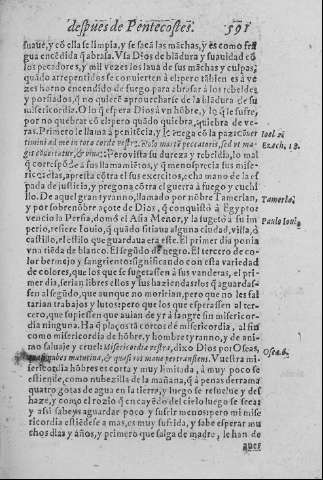 despues de Pentecostes. 591
suaue, y cõ ella se limpia, y se sacã las mãchas, y es como fra
gua encẽdida q̃ abrasa. Vsa Dios de blãdura y suauidad cõ
los pecadores, y mil vezes los laua de sus mãchas y culpas,
quãdo arrepentidos se conuierten à el: pero tãbien es à ve
zes horno encendido de fuego para abrasar à los rebeldes
y porfiados, q̃ no quierẽ aprouecharse de la blãdura de
su misericordia. O lo q̃ espera Dios à vn hõbre, y lo q̃ le sufre,
por no quebrar cõ el: pero quãdo quiebra, quiebra de ve-
ras. Primero le llama à penitẽcia, y le ruega cõ la paz: Conuer
timini ad me in toto corde vestro. Nolo mortẽ peccatoris, sed vt ma-
gis cõuertatur, & viuat. Pero vista su dureza y rebeldia, lo mal
q̃ correspõde à sus llamamiẽtos, y q̃ menosprecia sus mise-
ricordias, apresta cõtra el sus exercitos, echa mano de la es
pada de justicia, y pregona cõtra el guerra à fuego y cuchi
llo. De aquel gran tyranno, llamado por nõbre Tamerlan,
y por sobrenõbre açote de Dios, q̃ conquistò à Egypto:
vencio la Persia, domò el Asia Menor, y la sugetò à su im
perio, refiere Iouio, q̃ quãdo sitiaua alguna ciudad, villa, ò
castillo, el estilo que guardaua era este. El primer dia ponia
vna tiẽda de blanco. El segũdo de negro. El tercero de co-
lor bermejo y sangriento: significando con esta variedad
de colores, que los que se sugetassen à sus vanderas, el pri
mer dia, serian libres ellos y sus haziendas: los q̃ aguardas-
sen al segũdo, que aunque no moririan, pero que no les fal
tarian trabajos y luto: pero que los que esperassen al ter-
cero, que supiessen que auian de yr à sangre sin misericor-
dia ninguna. Ha q̃ plaços tã cortos de misericordia, al fin
como misericordia de hõbre, y hombre tyranno, y de ani-
mo saluaje y cruel: Misericordia vestra, dixo Dios por Oseas,
quasi nubes matutina, & quasi ros mane pertransiens. Vuestra mi-
sericordia hõbres es corta y muy limitada, à muy poco se
estiende, como nubezilla de la mañana, q̃ à penas derrama
quatro gotas de agua en la tierra, y luego se resuelue y des
haze, y como el rozio q̃ en cayẽdo del cielo luego se seca:
y assi sabeys aguardar poco y sufrir menos: pero mi mise
ricordia estiẽdese à mas, es muy sufrida, y sabe esperar mu
chos dias y años, y primero que salga de madre, le han de
auer
Ioel. 2.
Ezech. 18.
Tamerlã.
Paulo Iouio.
Osea. 6.